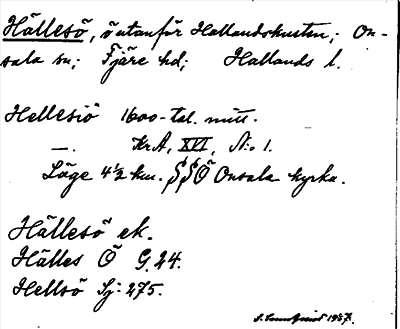 Hällesö, ö utanför Hallandskusten; On-
sala sn; Fjäre hd; Hallands l.
Hellesiö 1600-tal. mitt.
—. Kr.A, XVI, N:o 1.
Läge 4½ km. SSÖ Onsala kyrka.
Hällesö ek.
Hälles Ö G. 24.
Hellsö Sj: 275.
1927.